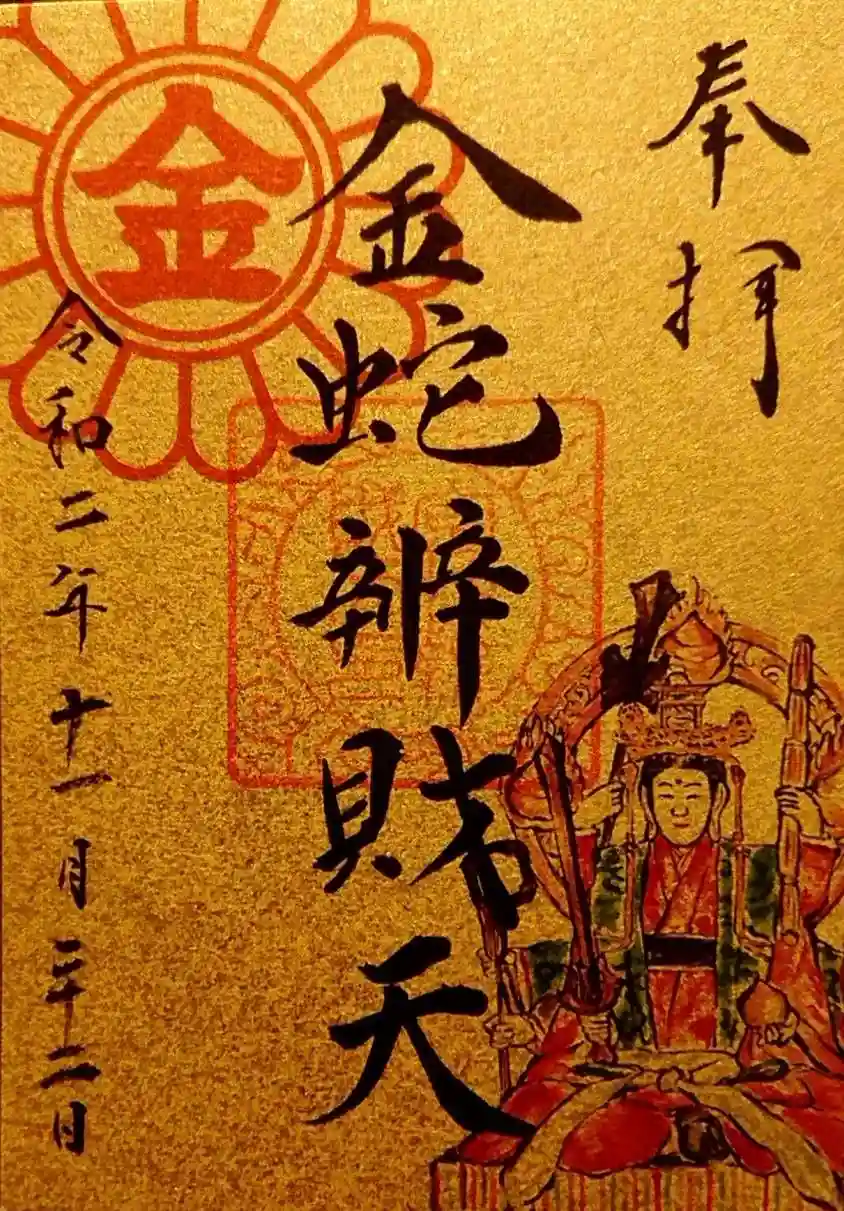 奉拝
金蛇辨財天
金
令和二年十一月二十二日